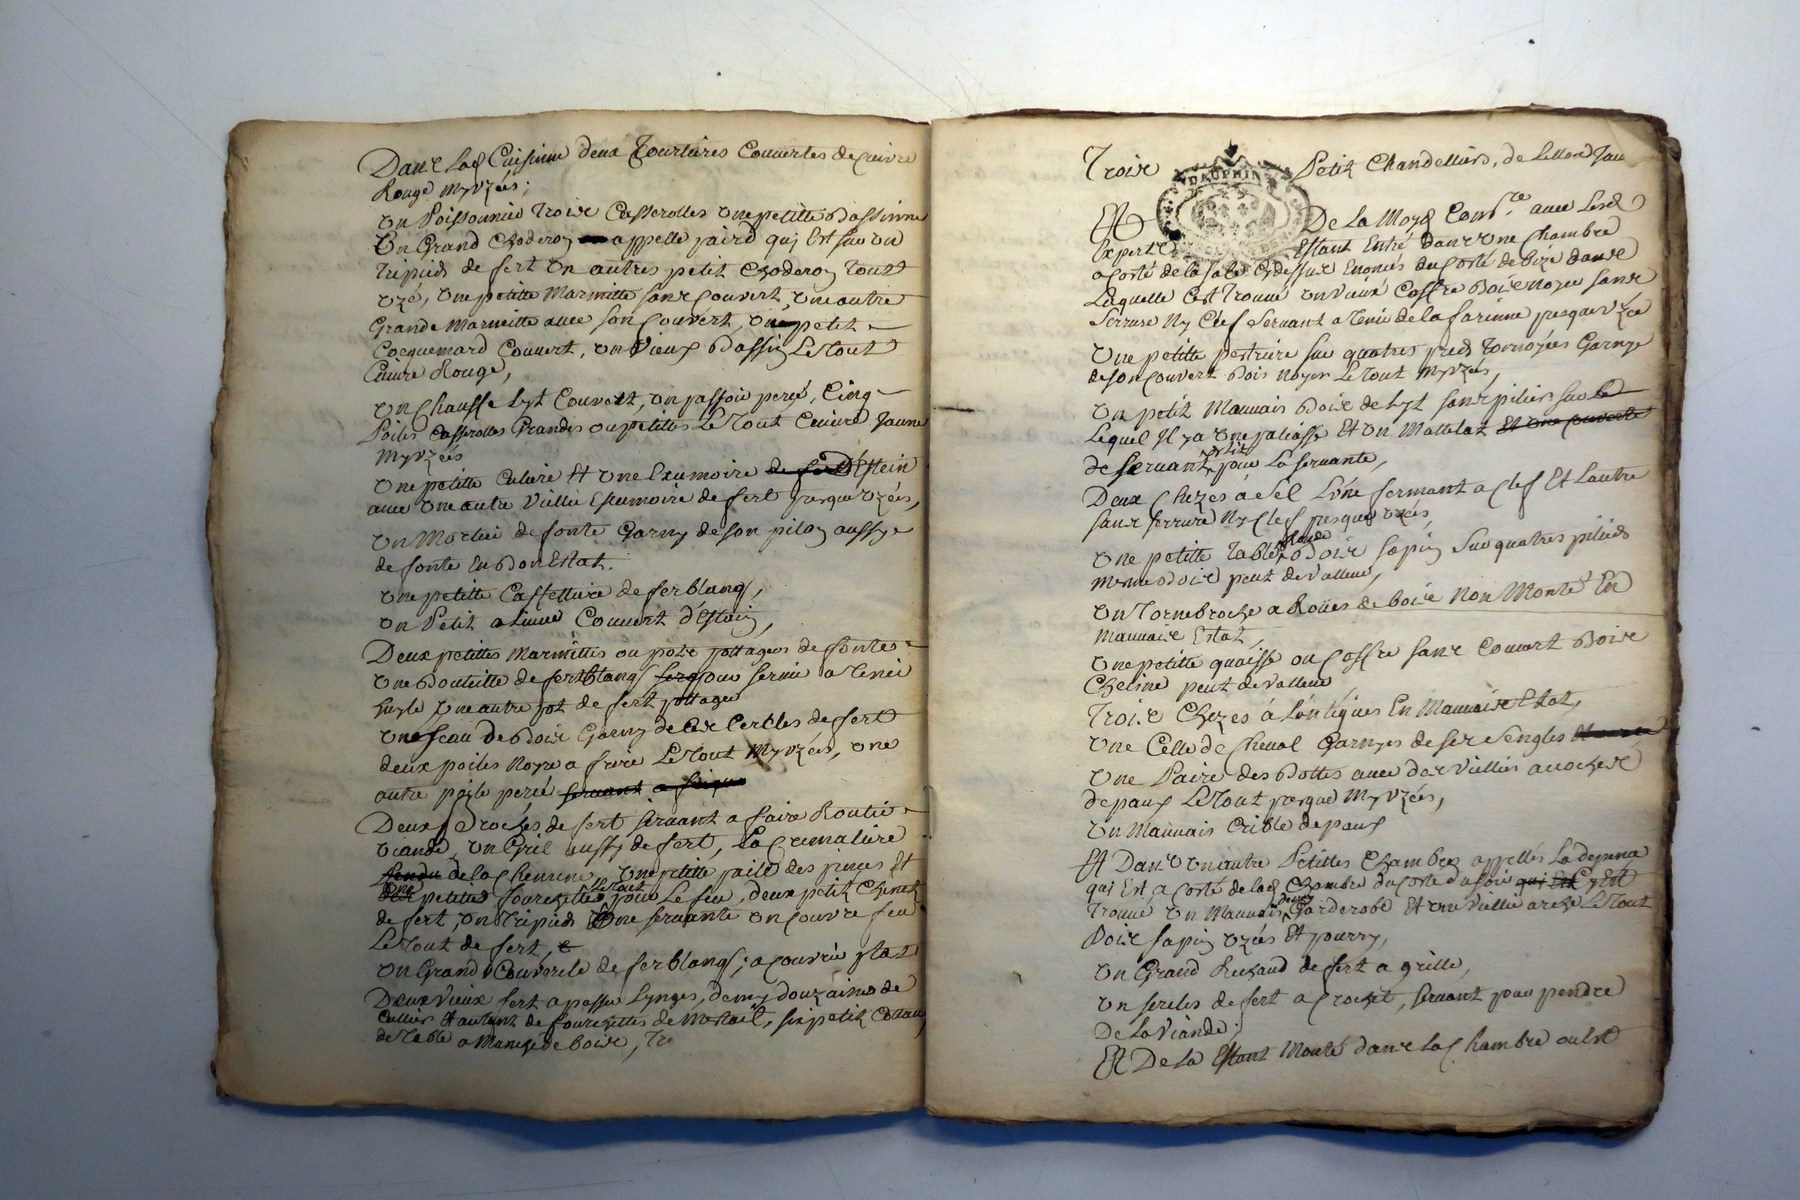 Dans Lad Cuisinne deux Tourtieres Couuertes de cuivre
Rouge myvzées;
un Poissonnier Trois Casserolles une petitte Bassinne
un Grand Choderon appelle pairol qui Est sur un
Trepieds de fert un autres petit Choderon Tout
uzé, une petitte Marmitte sans couvert, une autre
Grande Marmitte avec son couvert, une petit
Cocquemard Couvert, un vieux Bassin Le tout
Cuivre Rouge,
un Chausse lyt Couvert, un passoir percé, Cinq
Poiles Casserolles Grandes ou petittes Le tout Cuivre Jaune
myvzées
une petitte Culiere Et une Exumoire de fert d'Estein
avec une autre vieille Esumoire de fert presque uzées,
un Mortier de fonte Garny de son pilon aussy
de fonte En bon Estat.
une petitte Caffettiere de ferblang,
un Petit Couvert d'Estain,
Deux petittes marmittes ou pots pottagers de fontes
une Bouteille de fertblang pour servir a tenir
huyle une autre pot de fert pottager
un seau de Bois Garny de Cercles de fert
deux poiles noyre a frire Le tout Myvzées, une
autre poile percé servant a
Deux Broches de fert servant a faire Routir
viande, un Gril aussy de fert, La cremaliere
de la Cheminee, une petitte paile des pinces Et
une petittes fourchettes Le tout pour Le feu, deux petit Chenets
de fert, un Trepieds une servante un couvre feu
Le tout de fert,
un Grand Couvercle de ferblang; a couvrir plat
Deux vieux fert a passer Lynges, demy douzaines de
Cullier Et autant de fourchettes de Metail, six petit Couteau
de table a Manche de bois, Tr
Trois Petit Chandelliers, de Letton Jau
DAUPHIN
Et De La Moyd Comre avec Lesd
Experts Estant Entré dans une Chambre
a Costé de la Salle Cydessus Enoncés du Costé de bize dans
Laquelle C'est Trouvé un vieux Coffre Bois noyer sans
Serrure Ny Clef Servant a tenir de la farinne presque vzée
Une petitte pestriere sur quatres pieds Tornoyées Garnye
de son couvert Bois noyer Le tout myvzées,
un petit Mauvais Bois de Lyt sans piliers sur Le
Lequel Il y a une paliasse Et un Mattelat Et une couverte
de servant de lit pour La servante,
Deux Chezes a Sel L'une fermant a clef Et Lautre
sans serrure Ny clef presque uzées,
une petitte Table Ronde Bois sapin Sur quatres piliers
meme bois peut de valleur,
un Tornebroche a Roües de bois Non Monté En
mauvais Estat,
une petitte quaisse ou coffre sans Couvert Bois
Chesne peut de valleur
Trois Chezes à L'entiques En Mauvais Estat,
une Celle de Cheval Garnyes de ses Sengles
une Paire des Bottes avec des viellies
de paux Le tout presque Myvzées,
un Mauvais Crible de paux
Et Dans un autre Petittes Chambres appellés La depence
qui Est a Costé de lad Chambre du Costé du soir qui Est C'y Est
Trouvé un Mauvais Garderobe Et une viellie arche Le tout
Bois sapin uzées Et pourry,
un Grand Rechaud de fert a grille,
un sercles de fert a Crochet, servant pour pendre
De La viande;
Et De La Estant Monté dans La Chambre ou Est